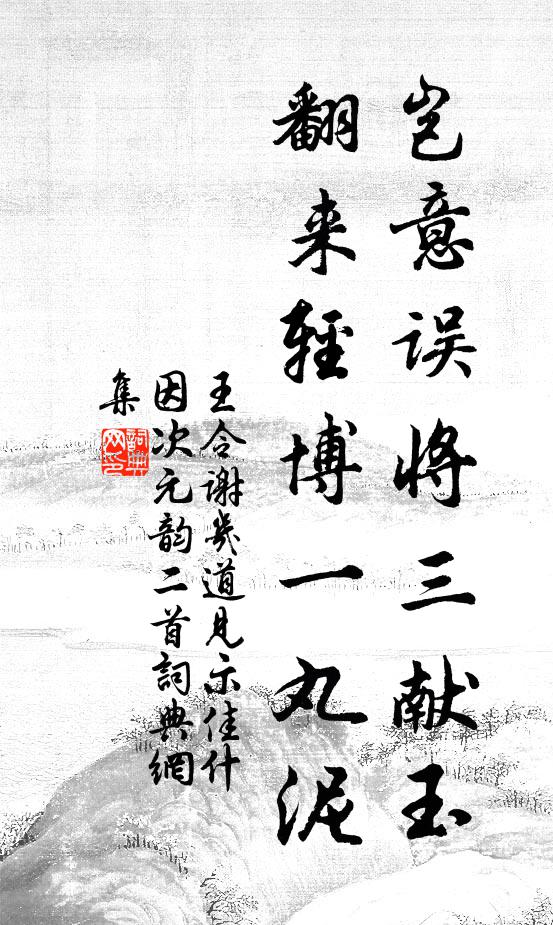 岂意误将三献玉
翻来轻博一丸泥
王令谢幾道见示佳什
因次元韵二首詞典網
集
詞典
网印